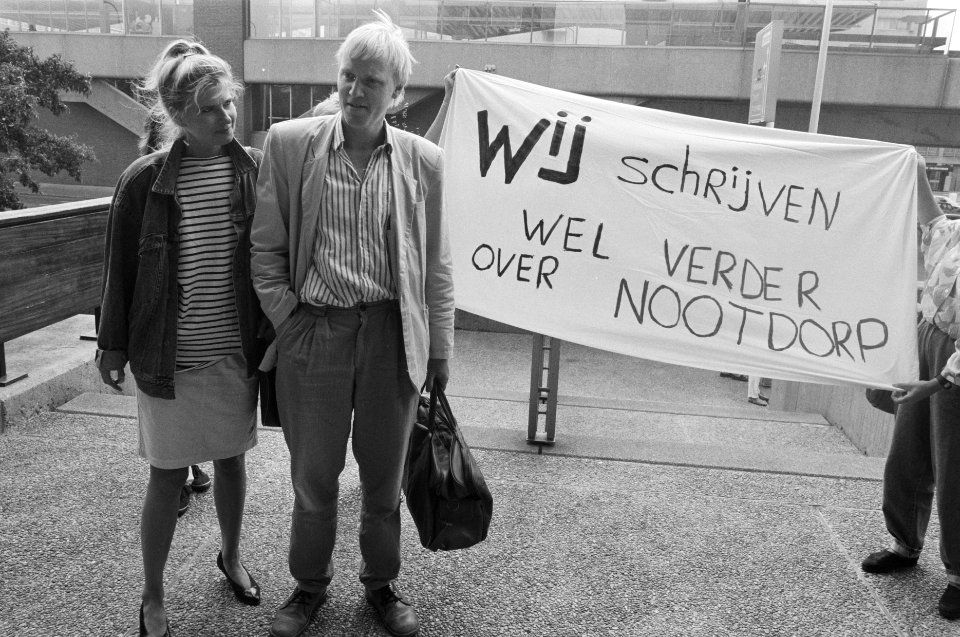 Wij SCHRijVEN
WEL VERDER
OVER NOOTDORP